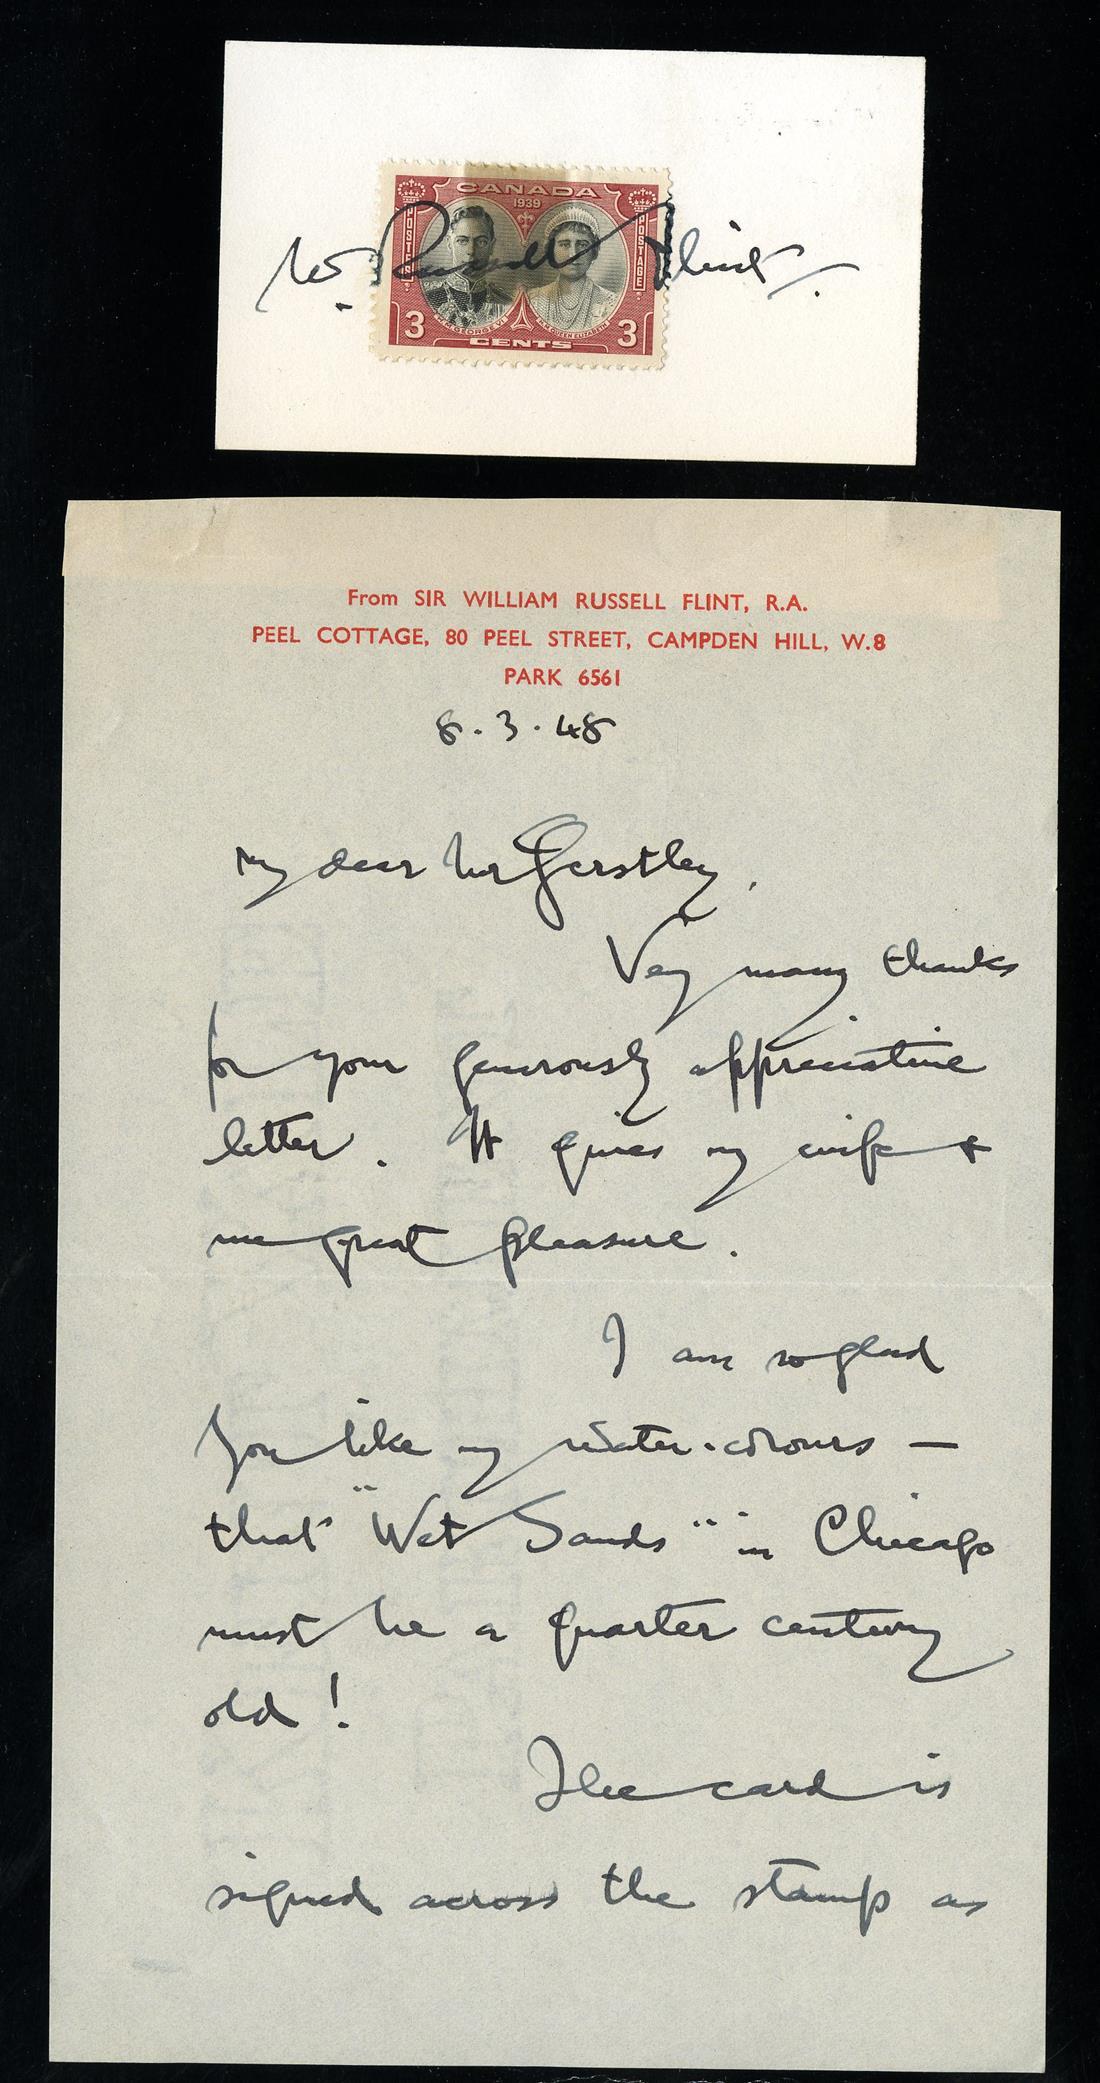 CANADA
1939
POSTAGE
POSTAGE
W. Russell Flint.
H.M. GEORGE VI
H.M. QUEEN ELIZABETH
3
3
CENTS
From SIR WILLIAM RUSSELL FLINT, R.A.
PEEL COTTAGE, 80 PEEL STREET, CAMPDEN HILL, W.8
PARK 6561
8.3.48
My dear Mr Gerstley,
Very many thanks
for your generously appreciative
letter. It gives my wife &
me great pleasure.
I am so glad
you like my water-colours —
that "Wet Sands" in Chicago
must be a quarter century
old!
The card is
signed across the stamp as